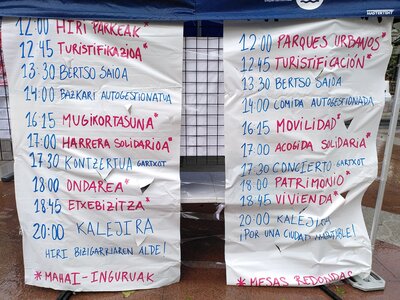 MASTERTENT
12:00 HIRI PARKEAK*
12'45 TURISTIFIKAZIOA*
13'30 BERTSO SAIOA
14:00 BAZKARI AUTOGESTIONATUA
16'15 MUGIKORTASUNA*
17:00 HARRERA SOLIDARIOA*
17'30 KONTZERTUA GARTXOT
18:00 ONDAREA*
18'45 ETXEBIZITZA*
20:00 KALEJIRA
HIRI BIZIGARRIAREN ALDE!
*MAHAI-INGURUAK
12:00 PARQUES URBANOS*
12'45 TURISTIFICACIÓN*
13'30 BERTSO SAIOA
14:00 COMIDA AUTOGESTIONADA
16'15 MOVILIDAD*
17:00 ACOGIDA SOLIDARIA*
17'30 CONCIERTO GARTXOT
18:00 PATRIMONIO*
18'45 VIVIENDA*
20:00 KALEJIRA
¡POR UNA CIUDAD HABITABLE!
*MESAS REDONDAS